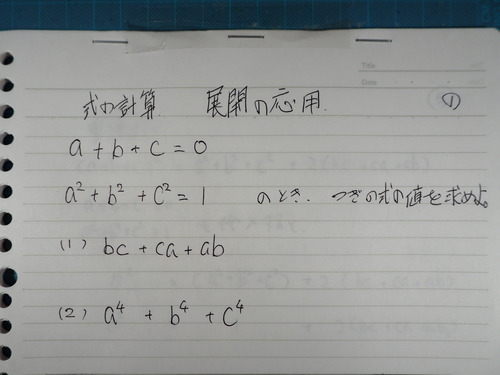 Title
Date
式の計算 展開の応用 ①
a + b + c = 0
a² + b² + c² = 1 のとき、つぎの式の値を求めよ。
(1) bc + ca + ab
(2) a⁴ + b⁴ + c⁴